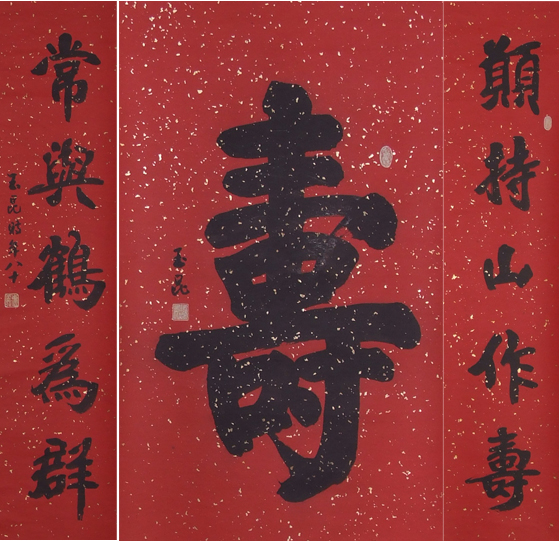 願持山作壽
壽
玉昆
常與鶴爲群
玉昆時年八十